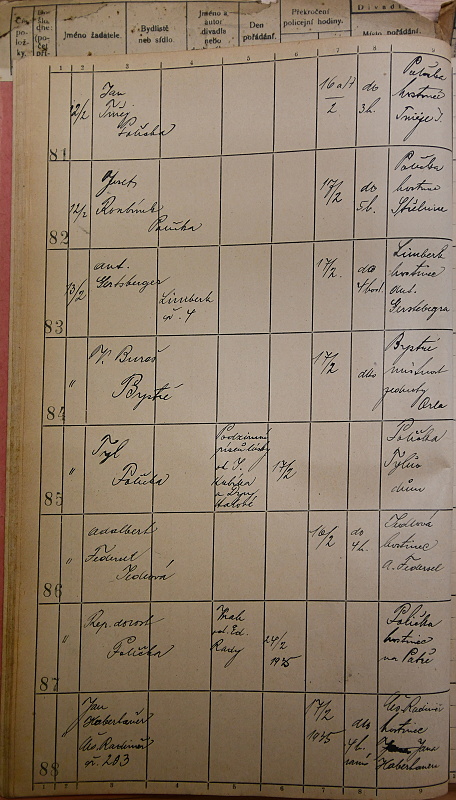 Jméno žadatele.
Bydliště
neb sídlo.
Jméno a
autor
divadla
nebo
Den
pořádání.
Překročení
policejní hodiny.
Místo pořádání.
1 2 3 4 5 6 7 8 9
81
12/2
Jan
Polička
16 a 17
2
do
3 h.
Polička
hostinec
82
12/2
Josef
Polička
17/2
do
5 h.
Polička
hostinec
Střelnice
83
13/2
Ant.
Gerstberger
Limberk
č. 4
17/2.
do
4 hod.
Limberk
hostinec
Ant.
Gerstbergra
84
"
V. Bureš
Bystré
17/2
dto
Bystré
místnost
jednoty
Orla
85
"
Tyl
Polička
Podzimní
píseň lásky
od J.
17/2
Polička
Tylův
dům
86
"
Adalbert
Federsel
Tedlová
16/2
do
4 h.
Tedlová
hostinec
A. Federsel
87
"
Rep. dorost
Polička
od Ed.
Rady
24/2
1925
Polička
hostinec
88
Jan
Haberhauer
čís. 203
17/2
1925
do
4 h.
ráno
hostinec
Jana
Haberhauera